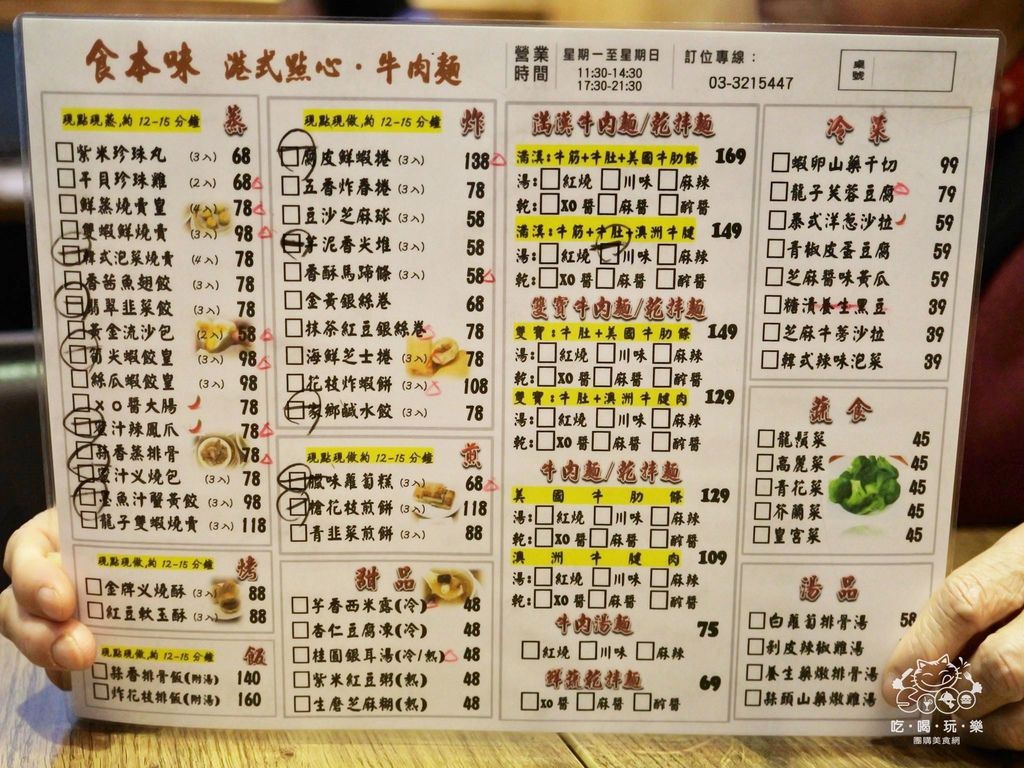 食本味 港式點心·牛肉麵
營業時間
星期一至星期日
11:30-14:30
17:30-21:30
訂位專線:
03-3215447
桌號
現點現蒸,約 12-15分鐘 蒸
紫米珍珠丸 (3入) 68
干貝珍珠雞 (2入) 68
鮮蒸燒賣皇 (4入) 78
雙蝦鮮燒賣 (3入) 98
韓式泡菜燒賣 (4入) 78
香茜魚翅餃 (3入) 78
翡翠韭菜餃 (3入) 78
黃金流沙包 (2入) 58
筍尖蝦餃皇 (3入) 98
絲瓜蝦餃皇 (3入) 98
XO醬大腸 78
蜜汁辣鳳爪 78
蒜香蒸排骨 78
蜜汁义燒包 (3入) 78
墨魚汁蟹黃餃 (3入) 98
龍子雙蝦燒賣 (3入) 118
現點現做,約 12-15分鐘 烤
金牌义燒酥 (3入) 88
紅豆軟玉酥 (3入) 88
現點現做,約 12-15分鐘 飯
蒜香排骨飯(附湯) 140
炸花枝排飯(附湯) 160
現點現做,約 12-15分鐘 炸
腐皮鮮蝦捲 (3入) 138
五香炸春捲 (3入) 78
豆沙芝麻球 (3入) 58
芋泥香尖堆 (3入) 58
香酥馬蹄條 (3入) 58
金黃銀絲卷 68
抹茶紅豆銀絲卷 78
海鮮芝士捲 (3入) 78
花枝炸蝦餅 (3入) 108
家鄉鹹水餃 (3入) 78
現點現做約 12-15分鐘 煎
臘味蘿蔔糕 (3入) 68
檜花枝煎餅 (3入) 118
青韭菜煎餅 (3入) 88
甜品
芋香西米露(冷) 48
杏仁豆腐凍(冷) 48
桂圓銀耳湯(冷/熱) 48
紫米紅豆粥(熱) 48
生磨芝麻糊(熱) 48
滿漢牛肉麵/乾拌麵
滿漢:牛筋+牛肚+美國牛肋條 169
湯:紅燒 川味 麻辣
乾:XO醬 麻醬 酢醬
滿漢:牛筋+牛肚+澳洲牛腱 149
湯:紅燒 川味 麻辣
乾:XO醬 麻醬 酢醬
雙寶牛肉麵/乾拌麵
雙寶:牛肚+美國牛肋條 149
湯:紅燒 川味 麻辣
乾:XO醬 麻醬 酢醬
雙寶:牛肚+澳洲牛腱肉 129
湯:紅燒 川味 麻辣
乾:XO醬 麻醬 酢醬
牛肉麵/乾拌麵
美國牛肋條 129
湯:紅燒 川味 麻辣
乾:XO醬 麻醬 酢醬
澳洲牛腱肉 109
湯:紅燒 川味 麻辣
乾:XO醬 麻醬 酢醬
牛肉湯麵 75
紅燒 川味 麻辣
鮮蔬乾拌麵 69
XO醬 麻醬 酢醬
冷菜
蝦卵山藥千切 99
龍子芙蓉豆腐 79
泰式洋蔥沙拉 59
青椒皮蛋豆腐 59
芝麻醬味黃瓜 59
糖漬養生黑豆 39
芝麻牛蒡沙拉 39
韓式辣味泡菜 39
蔬食
龍鬚菜 45
高麗菜 45
青花菜 45
芥蘭菜 45
皇宮菜 45
湯品
白蘿蔔排骨湯 58
剝皮辣椒雞湯
養生藥燉排骨湯
蒜頭山藥燉雞湯
吃·喝·玩·樂
團購美食網